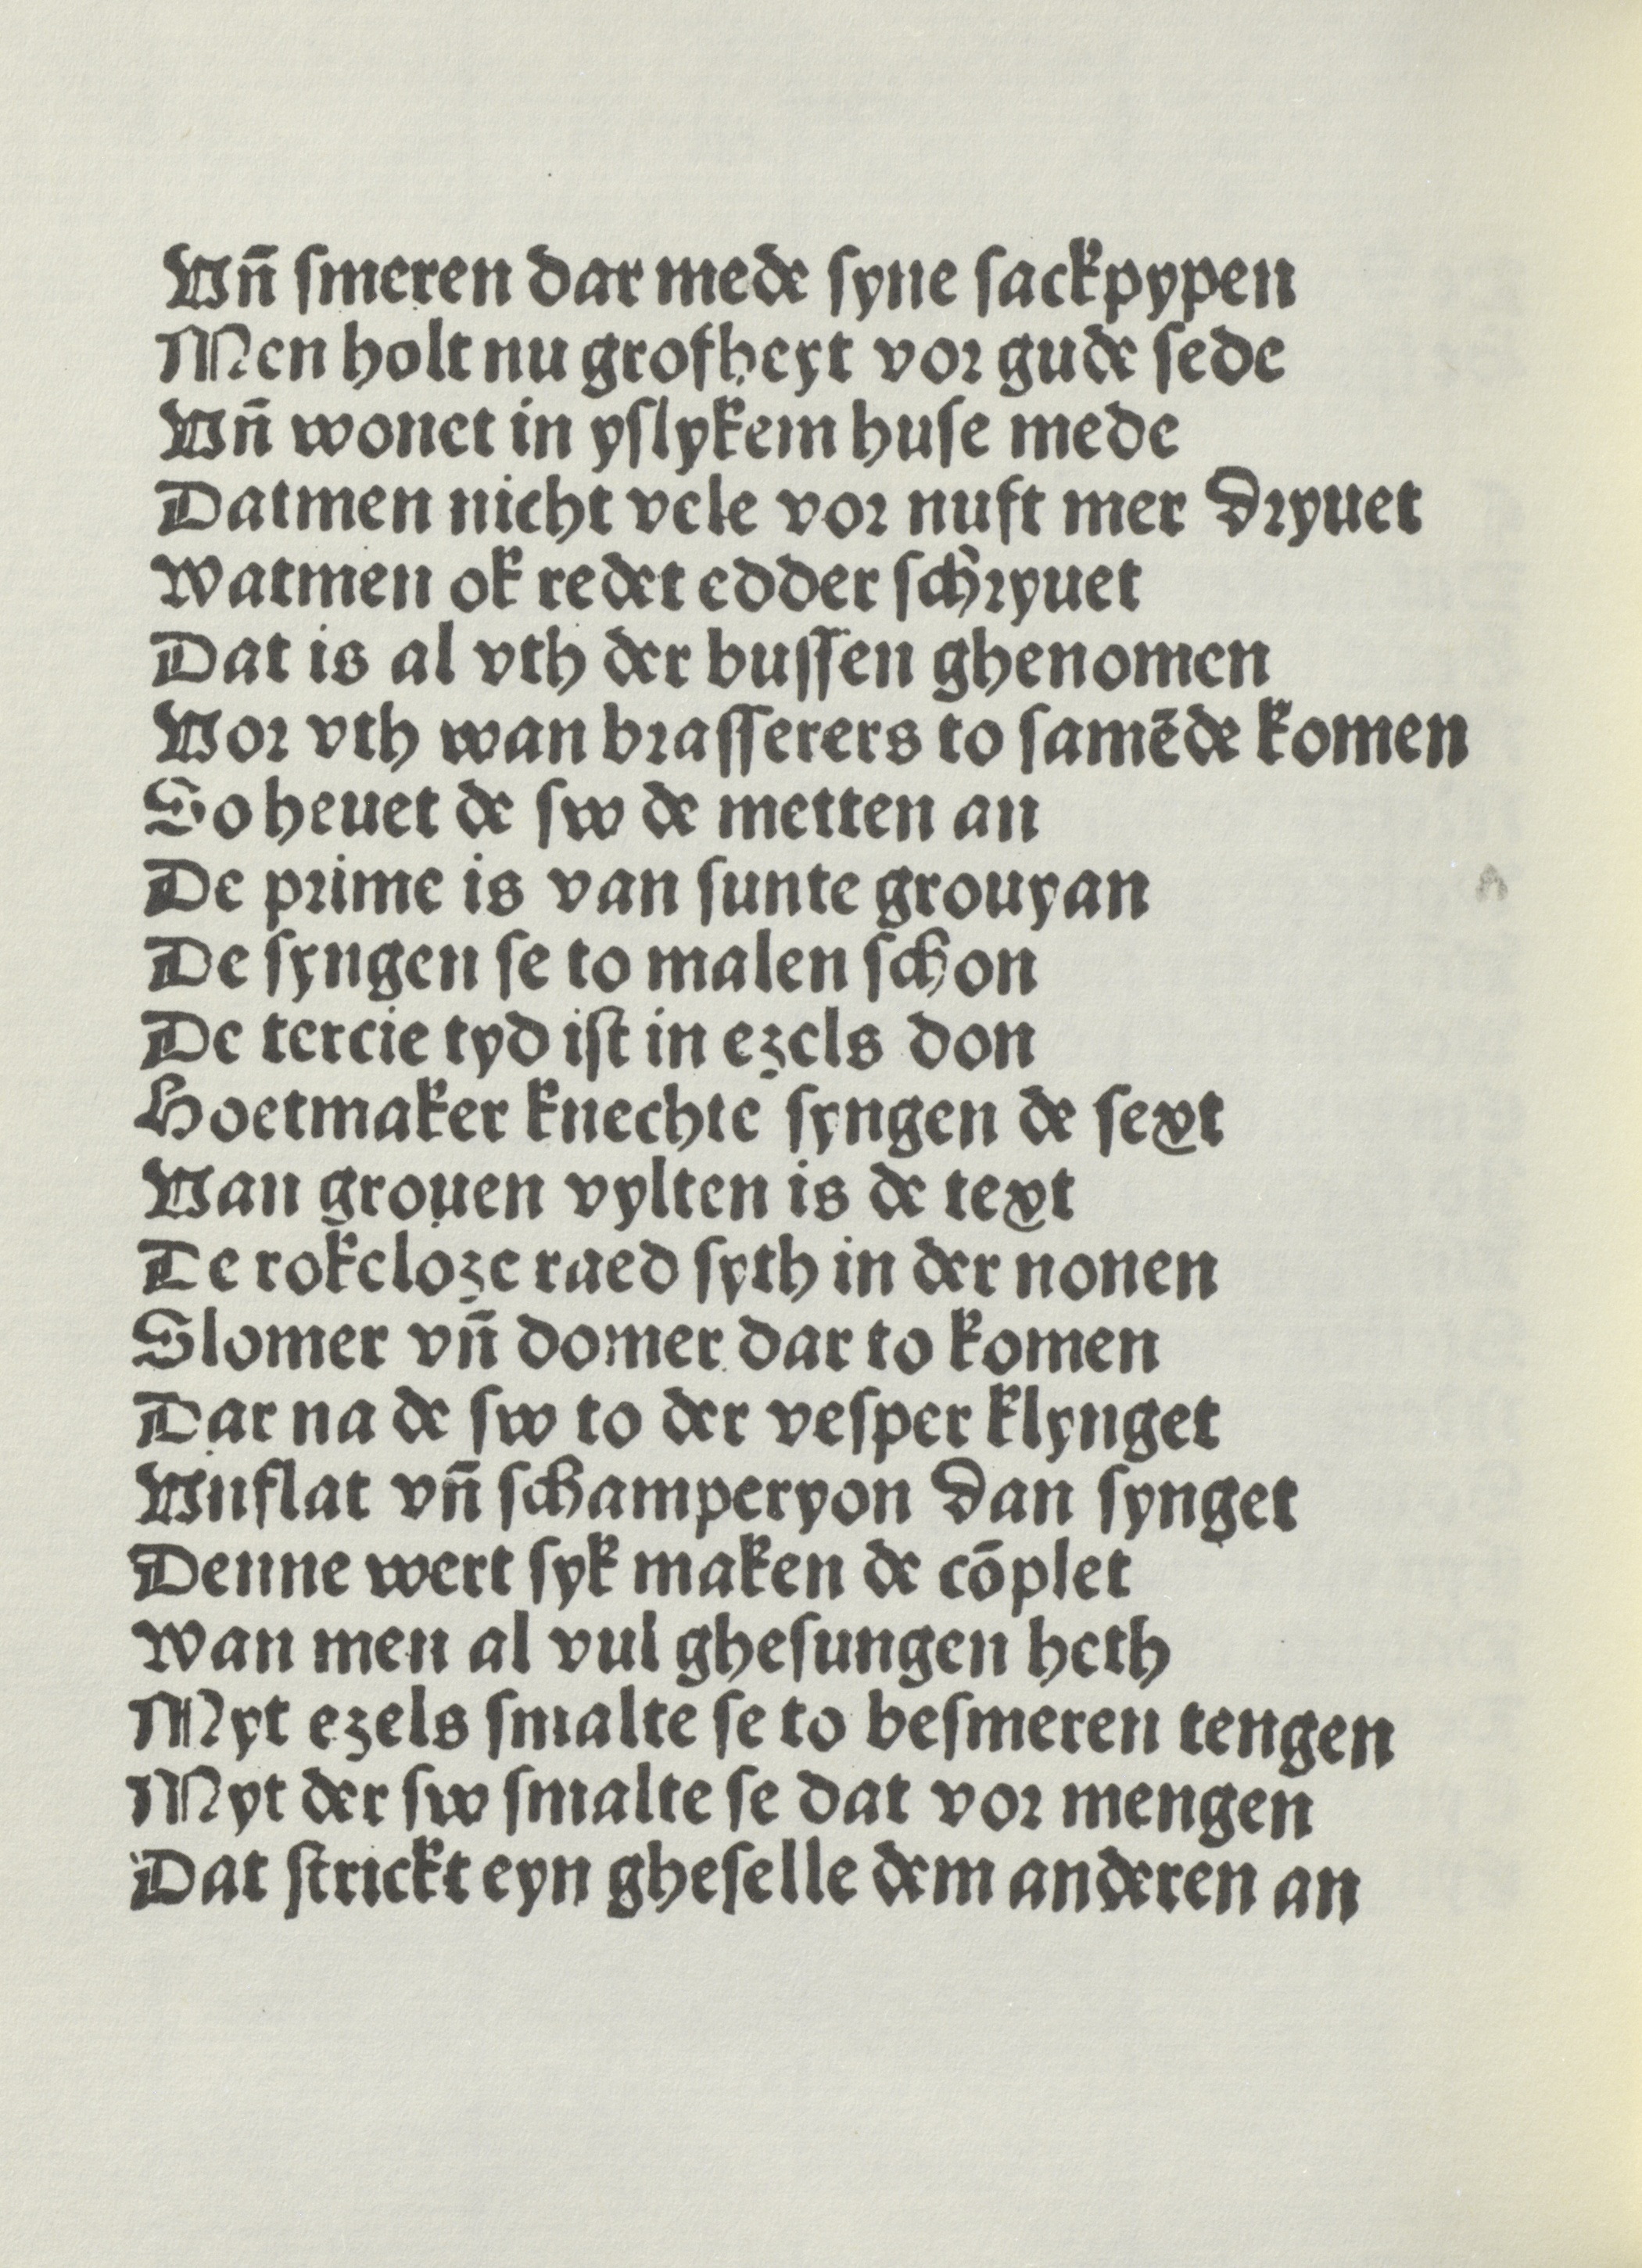 Vn̄ ſmeren dar mede ſyne ſackpypen
Men holt nu grofheyt vor gude ſede
Vn̄ wonet in yſlykem huſe mede
Datmen nicht vele vor nuft mer dryuet
Watmen ok redet edder ſchryuet
Dat is al vth der buſſen ghenomen
Vor vth wan braſſerers to ſamēde komen
So heuet de ſw de metten an
De prime is van ſunte grouyan
De ſyngen ſe to malen ſchon
De tercie tyd iſt in ezels don
Hoetmaker knechte ſyngen de ſext
Van grouen vylten is de text
De rokeloze raed ſyth in der nonen
Slomer vn̄ domer dar to komen
Dar na de ſw to der veſper klynget
Vnflat vn̄ ſchamperyon dan ſynget
Denne wert ſyk maken de cōplet
Wan men al vul gheſungen heth
Myt ezels ſmalte ſe to beſmeren tengen
Myt der ſw ſmalte ſe dat vor mengen
Dat ſtrickt eyn gheſelle dem anderen an